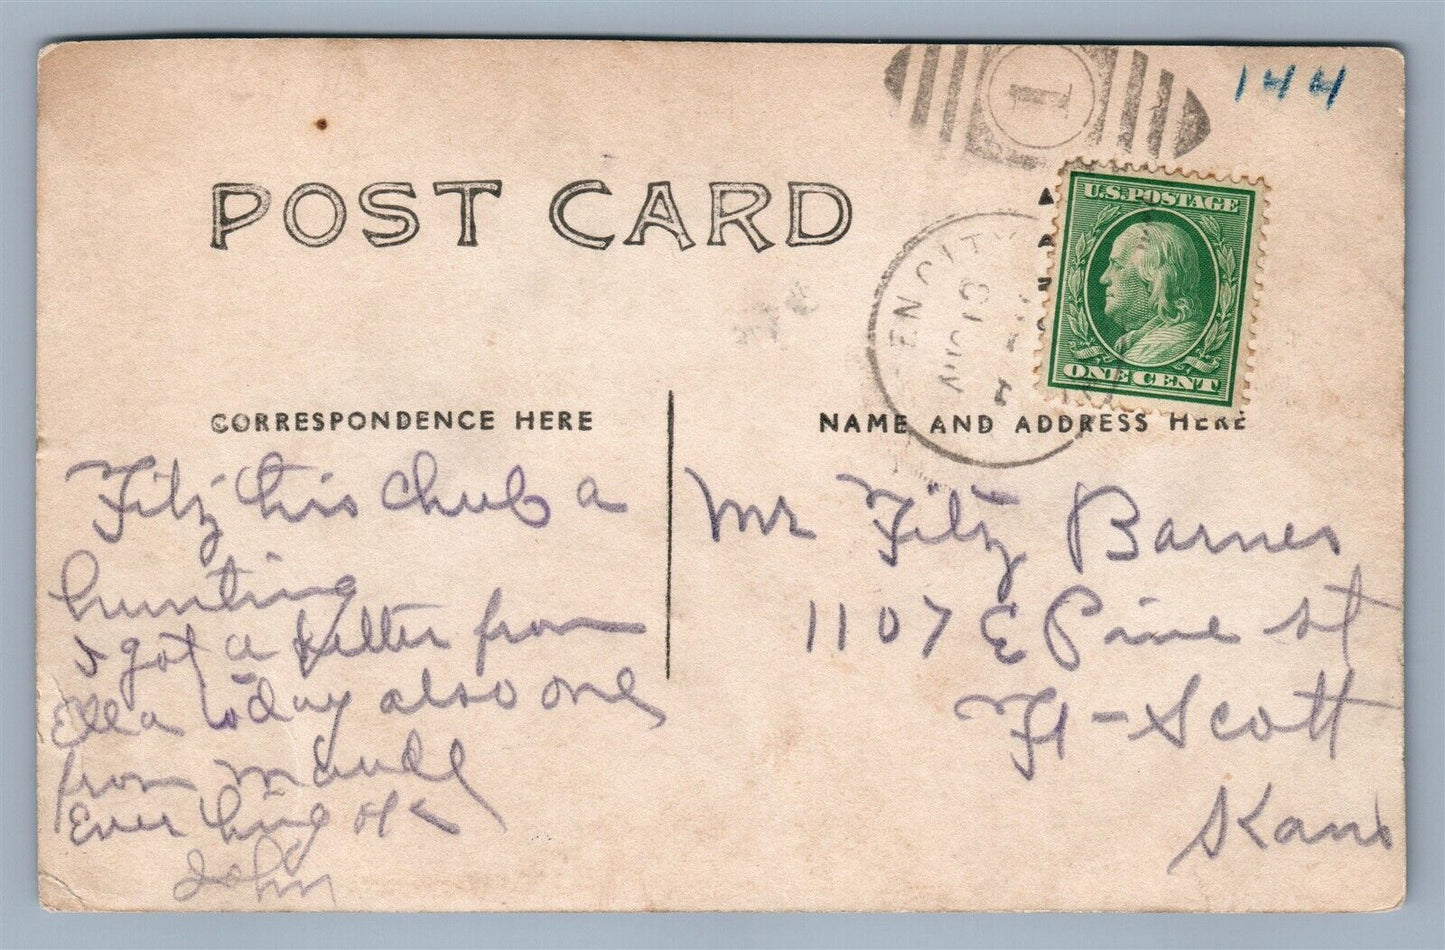 144
1
U.S. POSTAGE
ONE CENT
EN CITY
POST CARD
CORRESPONDENCE HERE
NAME AND ADDRESS HERE
Fitz this Chub a
hunting
I got a letter from
Ella today also one
from Maude
Ever thing ok
John
Mr Fitz Barnes
1107 E Pine st
Ft-Scott
Kans